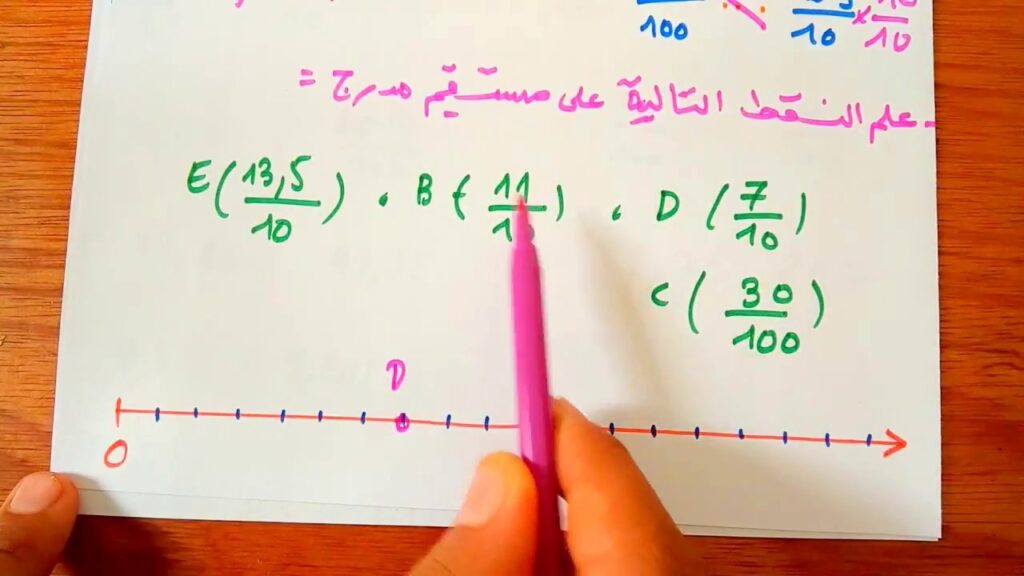 100   10 × 10
- علم النقط التالية على مستقيم مدرج =
E(13,5/10) . B(11/1 ) . D(7/10)
C(30/100)
D
0